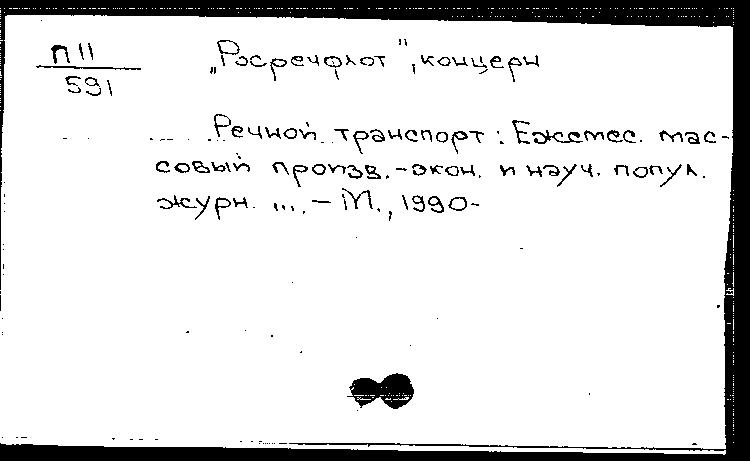 П II
591
„Росречфлот", концерн
Речной транспорт: Ежемес. мас-
совый произв.-экон. и науч. попул.
журн. ... – М., 1990-